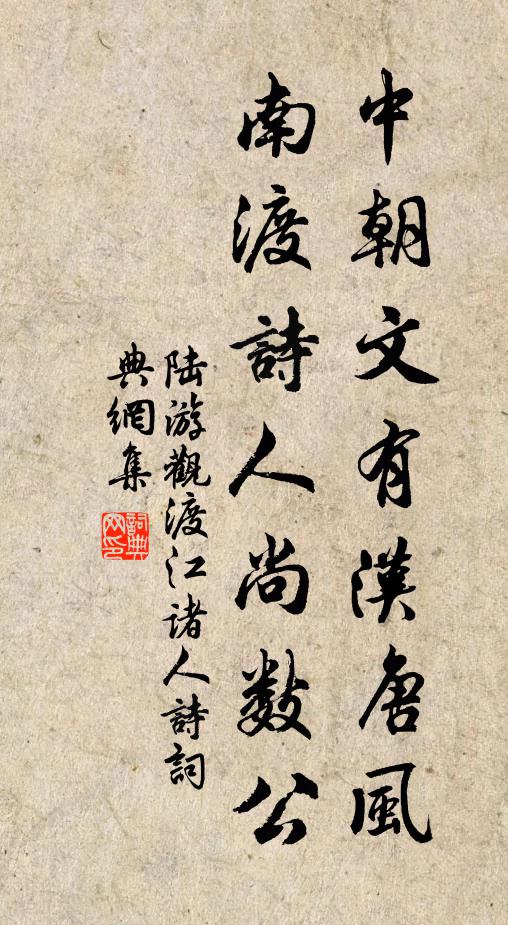 中朝文有漢唐風
南渡詩人尚數公
陆游觀渡江诸人詩詞
典網集
詞典
网印